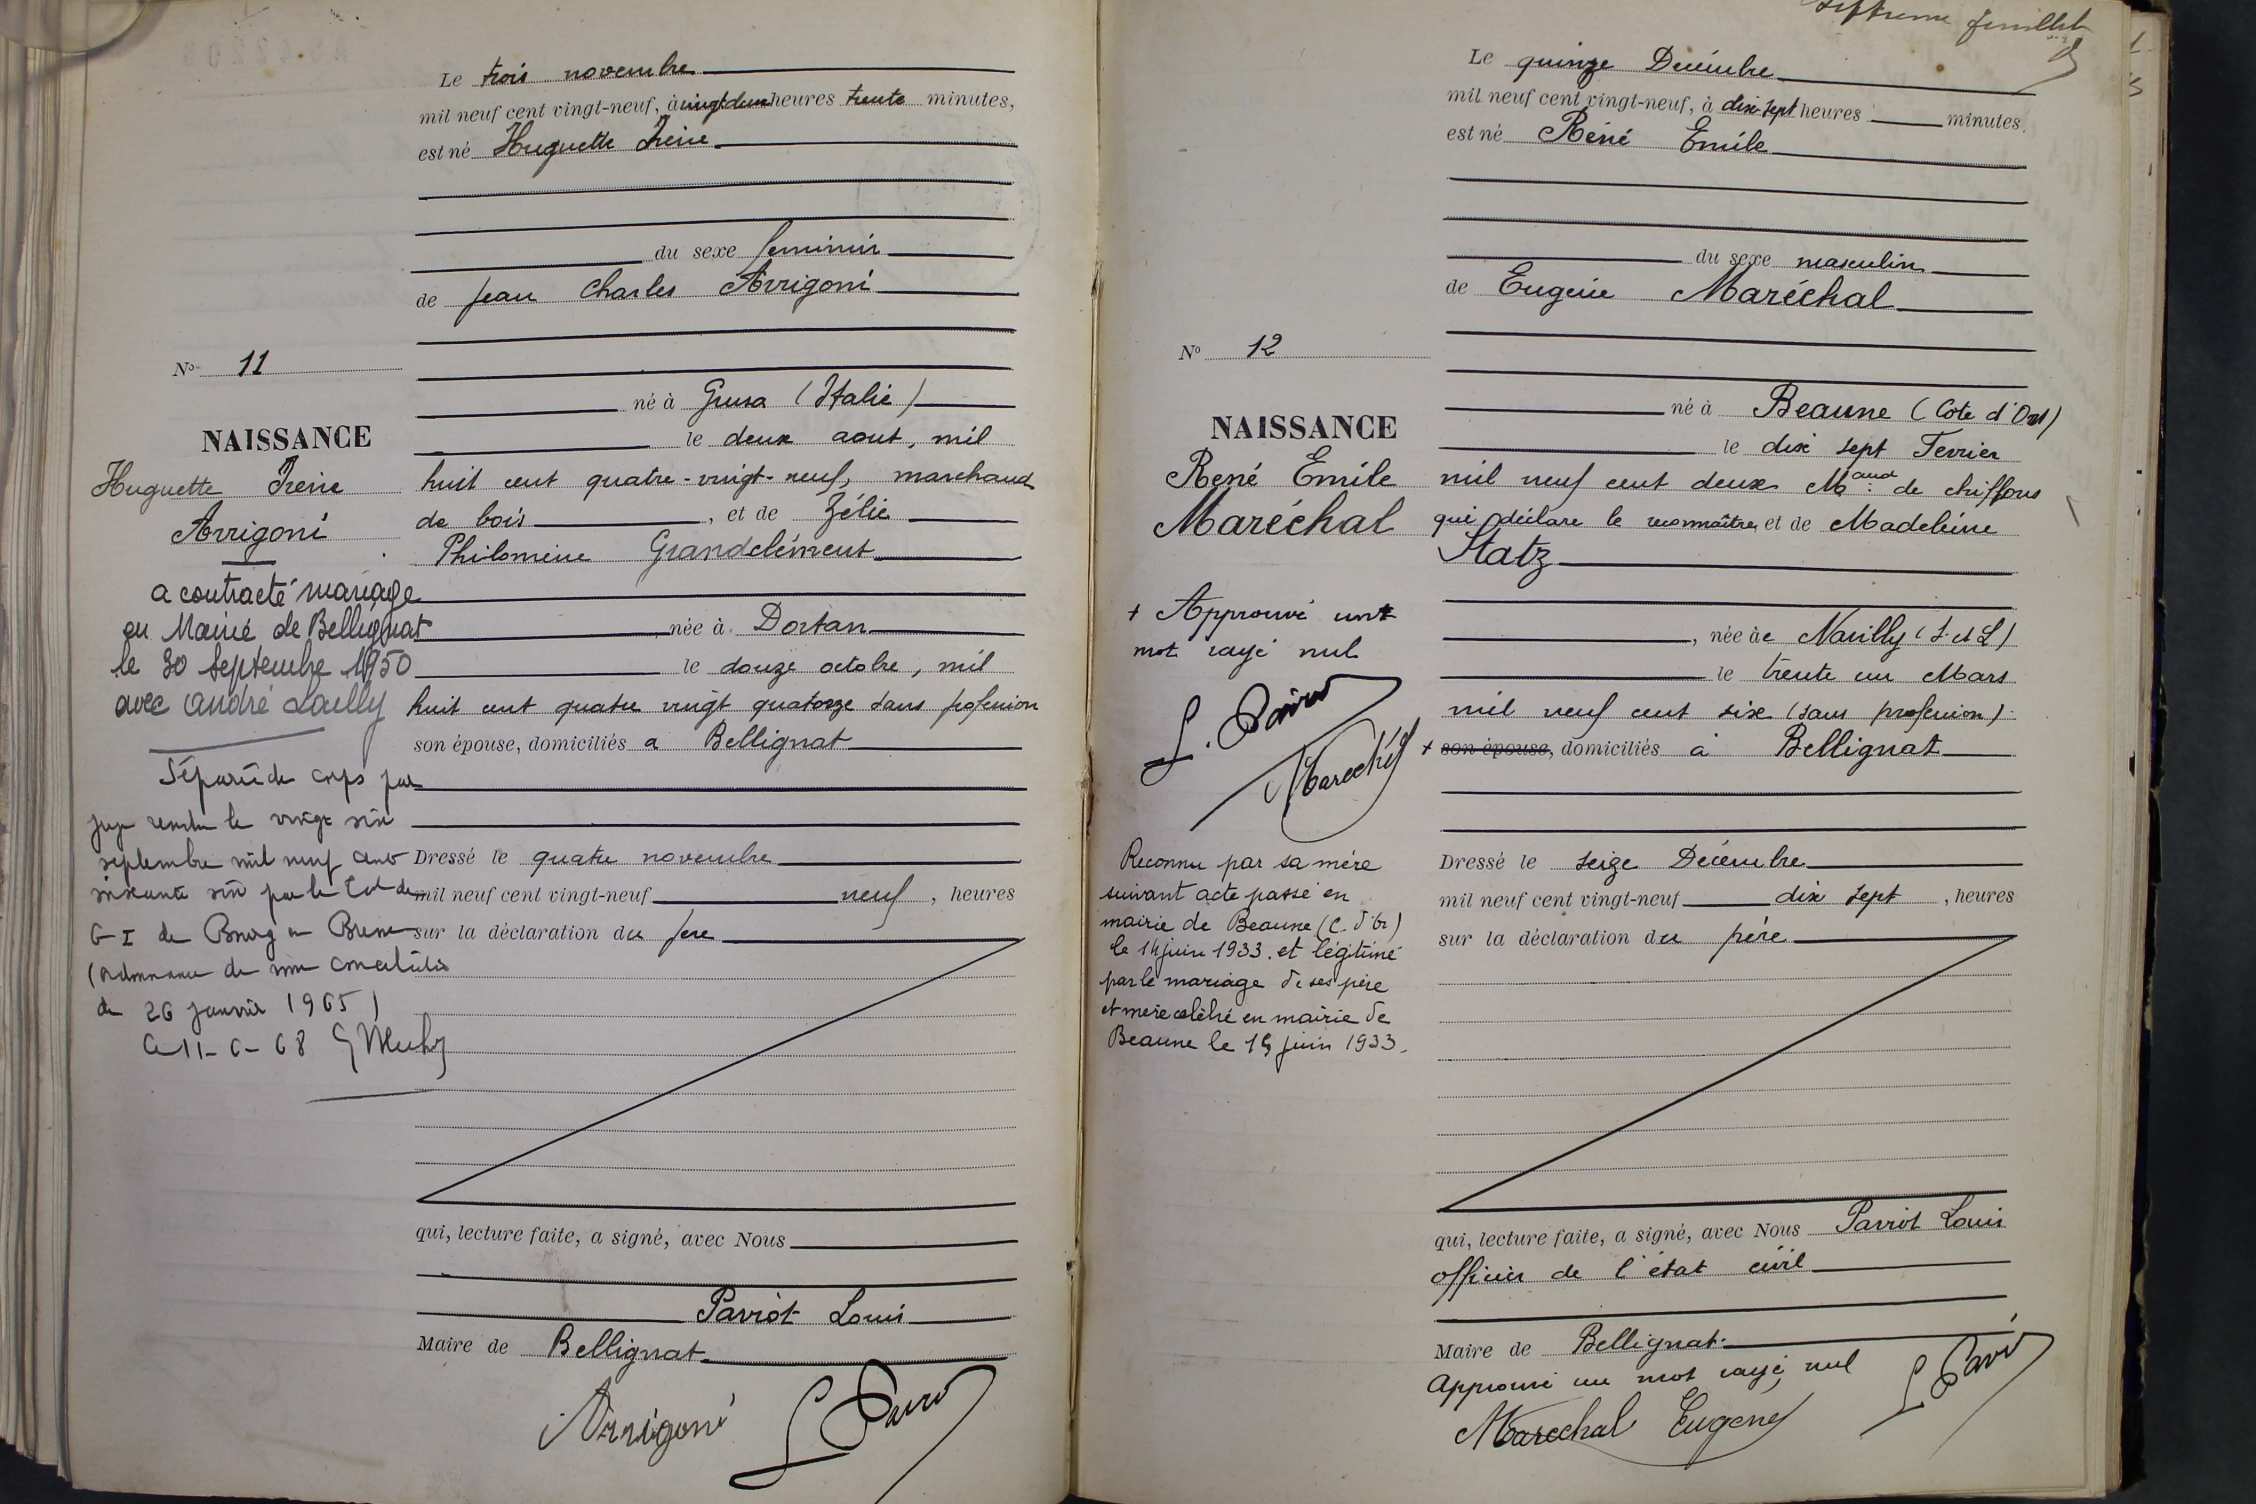 Le trois novembre
mil neuf cent vingt-neuf, à vingt deux heures trente minutes,
est né Huguette Irène
du sexe feminin
de Jean Charles Arrigoni
No 11
né à Grusa (Italie)
NAISSANCE
le deux aout, mil
Huguette Irène
huit cent quatre-vingt-neuf, marchand
Arrigoni
de bois, et de Zélie
Philomène Grandclément
a contracté mariage
en Mairie de Bellignat
née à Dortan
le 30 septembre 1950
le douze octobre, mil
avec André Lailly
huit cent quatre vingt quatorze sans profession
son épouse, domiciliés a Bellignat
Séparée de corps par
jugt rendu le vingt six
septembre mil neuf cent
Dressé le quatre novembre
soixante six par le
mil neuf cent vingt-neuf neuf, heures
G I de Bourg en Bresse
sur la déclaration du père
(ordonnance de non conciliation
du 26 janvier 1965)
qui, lecture faite, a signé, avec Nous
Paviot Louis
Maire de Bellignat
Arrigoni L Paviot
septième feuillet
Le quinze Décembre
mil neuf cent vingt-neuf, à dix-sept heures minutes,
est né René Emile
du sexe masculin
de Eugène Maréchal
No 12
né à Beaune (Cote d'Or)
NAISSANCE
le dix sept Fevrier
René Emile
mil neuf cent deux Mand de chiffons
Maréchal
qui déclare le reconnaître, et de Madeleine
Statz
+ Approuvé un
mot rayé nul
, née à Navilly (S. et L)
le trente un Mars
L. Paviot
mil neuf cent six (sans profession)
Maréchal
+ son épouse, domiciliés à Bellignat
Reconnu par sa mère
suivant acte passé en
mairie de Beaune (C. d'Or)
le 14 juin 1933, et légitimé
par le mariage de ses père
et mère célébré en mairie de
Beaune le 15 juin 1933.
Dressé le seize Décembre
mil neuf cent vingt-neuf dix sept, heures
sur la déclaration du père
qui, lecture faite, a signé, avec Nous Paviot Louis
officier de l'état civil
Maire de Bellignat
Approuvé un mot rayé nul
L Paviot
Marechal Eugene